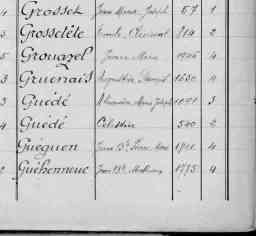 4 Grosset Jean Marie Joseph 57 1
3 Grosselête Emile Clément 814 2
5 Grouazel Jean Marie 4
3 Gruenais Augustin 1530 4
3 Guédé Alexandre Marie Joseph 3
4 Guédé Célestin 540 2
Guéguen Jean Bte Pierre Marie 4
2 Guéhenneuc Jean Bte Mathurin 1775 4